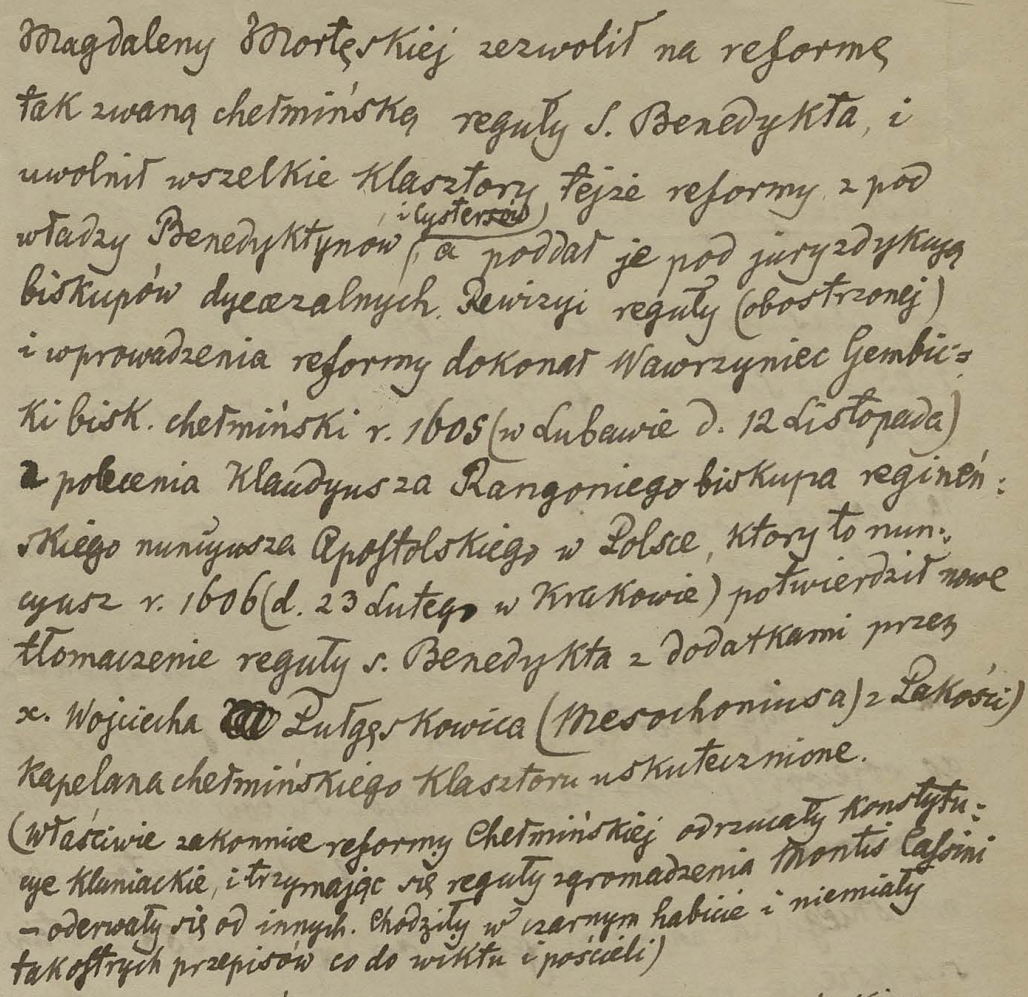 Magdaleny Mortęskiej zezwolił na reformę
tak zwaną chełmińską reguły S. Benedykta, i
uwolnił wszelkie klasztory tejże reformy z pod
władzy Benedyktynów (i Cystersów), a poddał je pod juryzdykcyą
biskupów dyecezalnych. Rewizyi reguły (obostrzonej)
i wprowadzenia reformy dokonał Wawrzyniec Gembic=
ki bisk. chełmiński r. 1605 (w Lubawie d. 12 Listopada)
z polecenia Klaudyusza Rangoniego biskupa regineń:
skiego nuncyusza Apostolskiego w Polsce, który to nun:
cyusz r. 1606 (d. 23 Lutego w Krakowie) potwierdził nowe
tłomaczenie reguły s. Benedykta z dodatkami przez
x. Wojciecha Pułgęskowica (Mesochoniusa) z Pakości)
kapelana chełmińskiego klasztoru uskutecznione.
(Właściwie zakonnice reformy Chełmińskiej odrzucały konstytu:
cye kluniackie, i trzymając się reguły zgromadzenia Montis Cassini
– oderwały się od innych. Chodziły w czarnym habicie i niemiały
tak ostrych przepisów co do wiktu i pościeli)